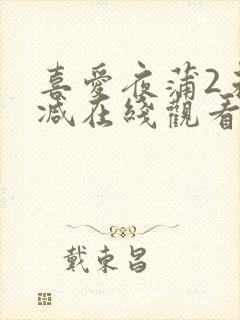 喜愛夜蒲2未
減在綫觀看
戴東昌